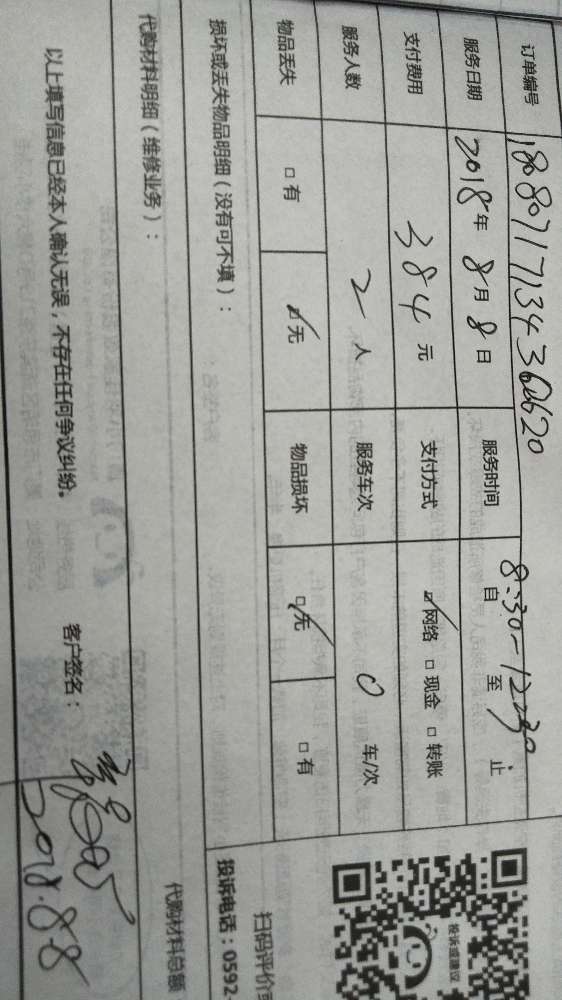 订单编号 180807171343
服务日期 2018年8月8日 服务时间 自 8:30-12:30 至 止
支付费用 384元 支付方式 ☑网络 □现金 □转账
服务人数 2人 服务车次 0车/次
物品丢失 □有 ☑无 物品损坏 ☑无 □有
损坏或丢失物品明细(没有可不填):
代购材料明细(维修业务):
代购材料总额
以上填写信息已经本人确认无误,不存在任何争议纠纷。 客户签名:
2018.8.8
投诉或建议
扫码评价
投诉电话:0592-